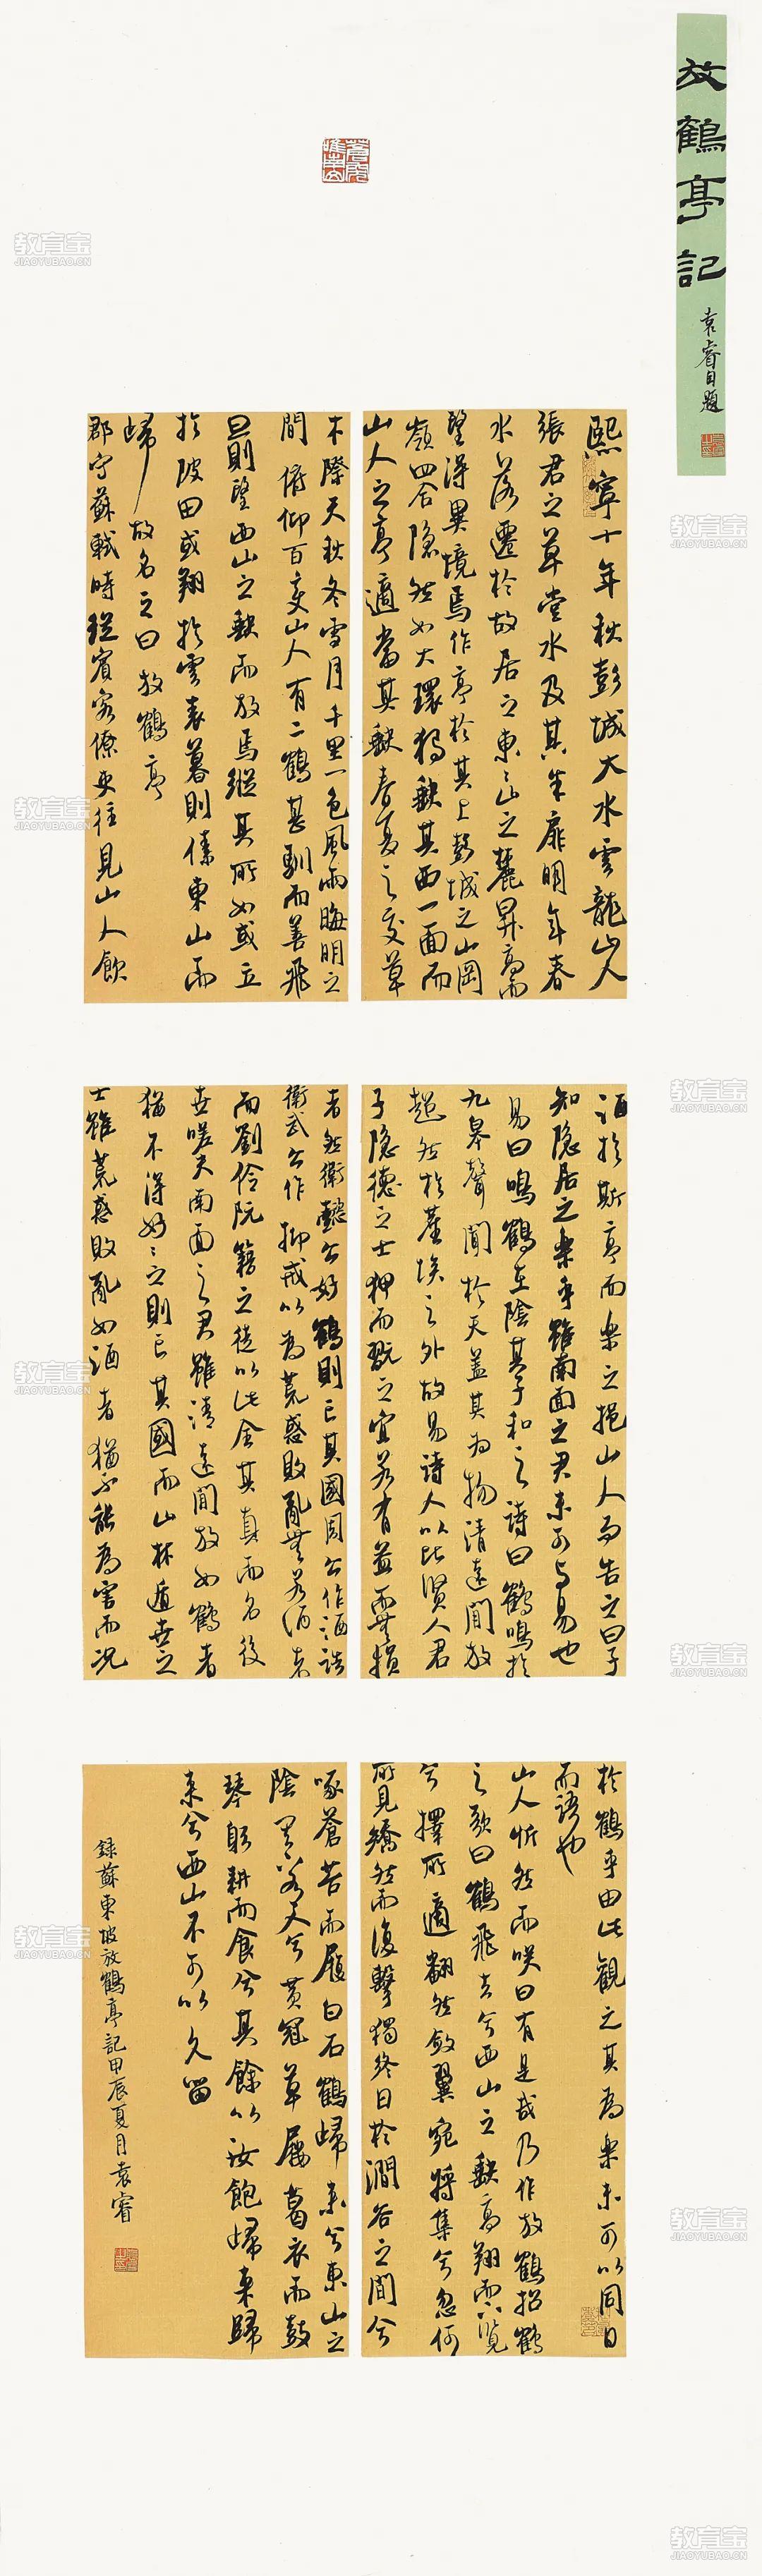 放鶴亭記
袁睿自題
熙寧十年秋彭城大水雲龍山人
張君之草堂水及其半扉明年春
水落遷於故居之東〻山之麓昇高而
望得異境焉作亭於其上彭城之山岡
嶺四合隱然如大環獨缺其西一面而
山人之亭適當其缺春夏之交草
木際天秋冬雪月千里一色風雨晦明之
間俯仰百變山人有二鶴甚馴而善飛
旦則望西山之缺而放焉縱其所如或立
於陂田或翔於雲表暮則傃東山而
歸故名之曰放鶴亭
郡守蘇軾時從賓客僚吏往見山人飲
酒於斯亭而樂之挹山人而告之曰子
知隱居之樂乎雖南面之君未可與易也
易曰鳴鶴在陰其子和之詩曰鶴鳴於
九皋聲聞於天蓋其為物清遠閒放
超然於塵埃之外故易詩人以比賢人君
子隱德之士狎而翫之宜若有益而無損
者然衛懿公好鶴則亡其國周公作酒誥
衛武公作抑戒以為荒惑敗亂無若酒者
而劉伶阮籍之徒以此全其真而名後
世嗟夫南面之君雖清遠閒放如鶴者
猶不得好〻之則亡其國而山林遁世之
士雖荒惑敗亂如酒者猶不能為害而況
於鶴乎由此觀之其為樂未可以同日
而語也
山人忻然而笑曰有是哉乃作放鶴招鶴
之歌曰鶴飛去兮西山之缺高翔而下覽
兮擇所適翻然斂翼宛將集兮忽何
所見矯然而復擊獨終日於澗谷之間兮
啄蒼苔而履白石鶴歸來兮東山之
陰其下有人兮黃冠草屨葛衣而鼓
琴躬耕而食兮其餘以汝飽歸來歸
來兮西山不可以久留
錄蘇東坡放鶴亭記甲辰夏月袁睿
教育宝
JIAOYUBAO.CN
教育宝
JIAOYUBAO.CN
教育宝
JIAOYUBAO.CN
教育宝
JIAOYUBAO.CN
教育宝
JIAOYUBAO.CN
教育宝
JIAOYUBAO.CN
教育宝
JIAOYUBAO.CN
教育宝
JIAOYUBAO.CN
教育宝
JIAOYUBAO.CN